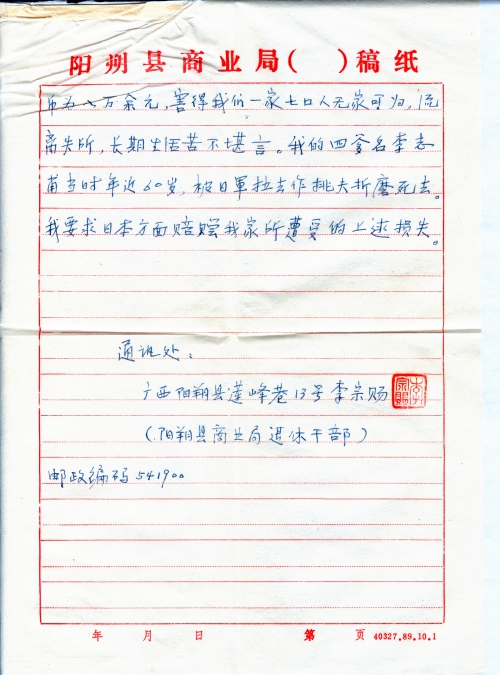 阳朔县商业局( )稿纸
币为八万余元，害得我们一家七口人无家可归，流
离失所，长期生活苦不堪言。我的四爹名李志
甫当时年近60岁，被日軍拉去作挑夫折磨死去。
我要求日本方面赔赏我家所遭受的上述损失。
通讯处：
广西阳朔县莲峰巷13号李宗赐
(阳朔县商业局退休干部)
邮政编码541900
年 月 日 第 页 40327.89.10.1